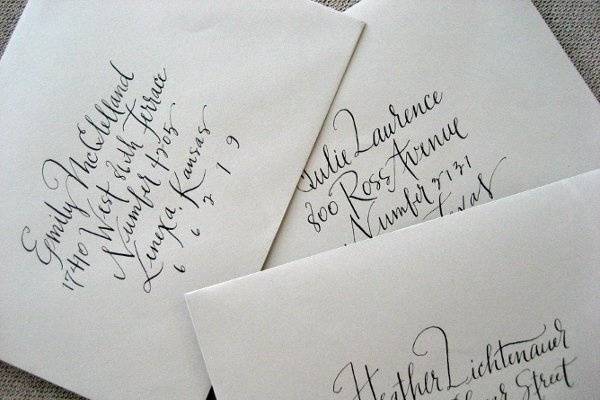 Emily McClelland
17410 West 86th Terrace
Number 4205
Lenexa, Kansas
6 6 2 1 9
Julie Laurence
800 Ross Avenue
Number 2131
Texas
Heather Lichtenauer
Street